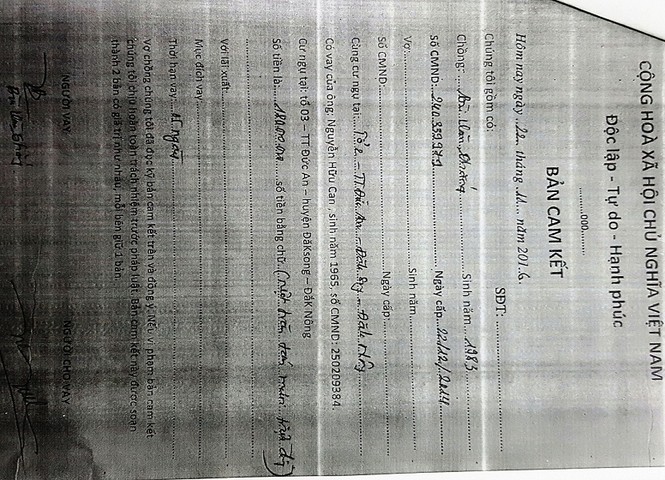 CỘNG HOÀ XÃ HỘI CHỦ NGHĨA VIỆT NAM
Độc lập - Tự do - Hạnh phúc
.........000.........
BẢN CAM KẾT
SĐT: ....................
Hôm nay ngày ..22.. tháng .11... năm 201.6.
Chúng tôi gồm có:
Chồng: ... Bùi Văn ... Sinh năm ..1983
Số CMND: ... Ngày cấp...22/12/2014
Vợ: ........ Sinh năm ........
Số CMND: ........ Ngày cấp: ........
Cùng cư ngụ tại: ..Tổ 2 - TT Đức An - Đăk Song - Đăk Nông
Có vay của ông: Nguyễn Hữu Can , sinh năm 1965, số CMND: 250209384
Cư ngụ tại: tổ 03 – TT Đức An – huyện ĐăKsong – Đăk Nông
Số tiền là ........ số tiền bằng chữ: (một trăm tám mươi ...)
Với lãi xuất: ........
Mục đích vay: ........
Thời hạn vay ........ ngày
Vợ chồng chúng tôi đã đọc kỹ bản cam kết trên và đồng ý. Nếu vi phạm bản cam kết
chúng tôi chịu hoàn toàn trách nhiệm trước pháp luật. Bản cam kết này được soạn
thành 2 bản có giá trị như nhau, mỗi bên giữ 1 bản.
NGƯỜI VAY NGƯỜI CHO VAY
Bùi Văn